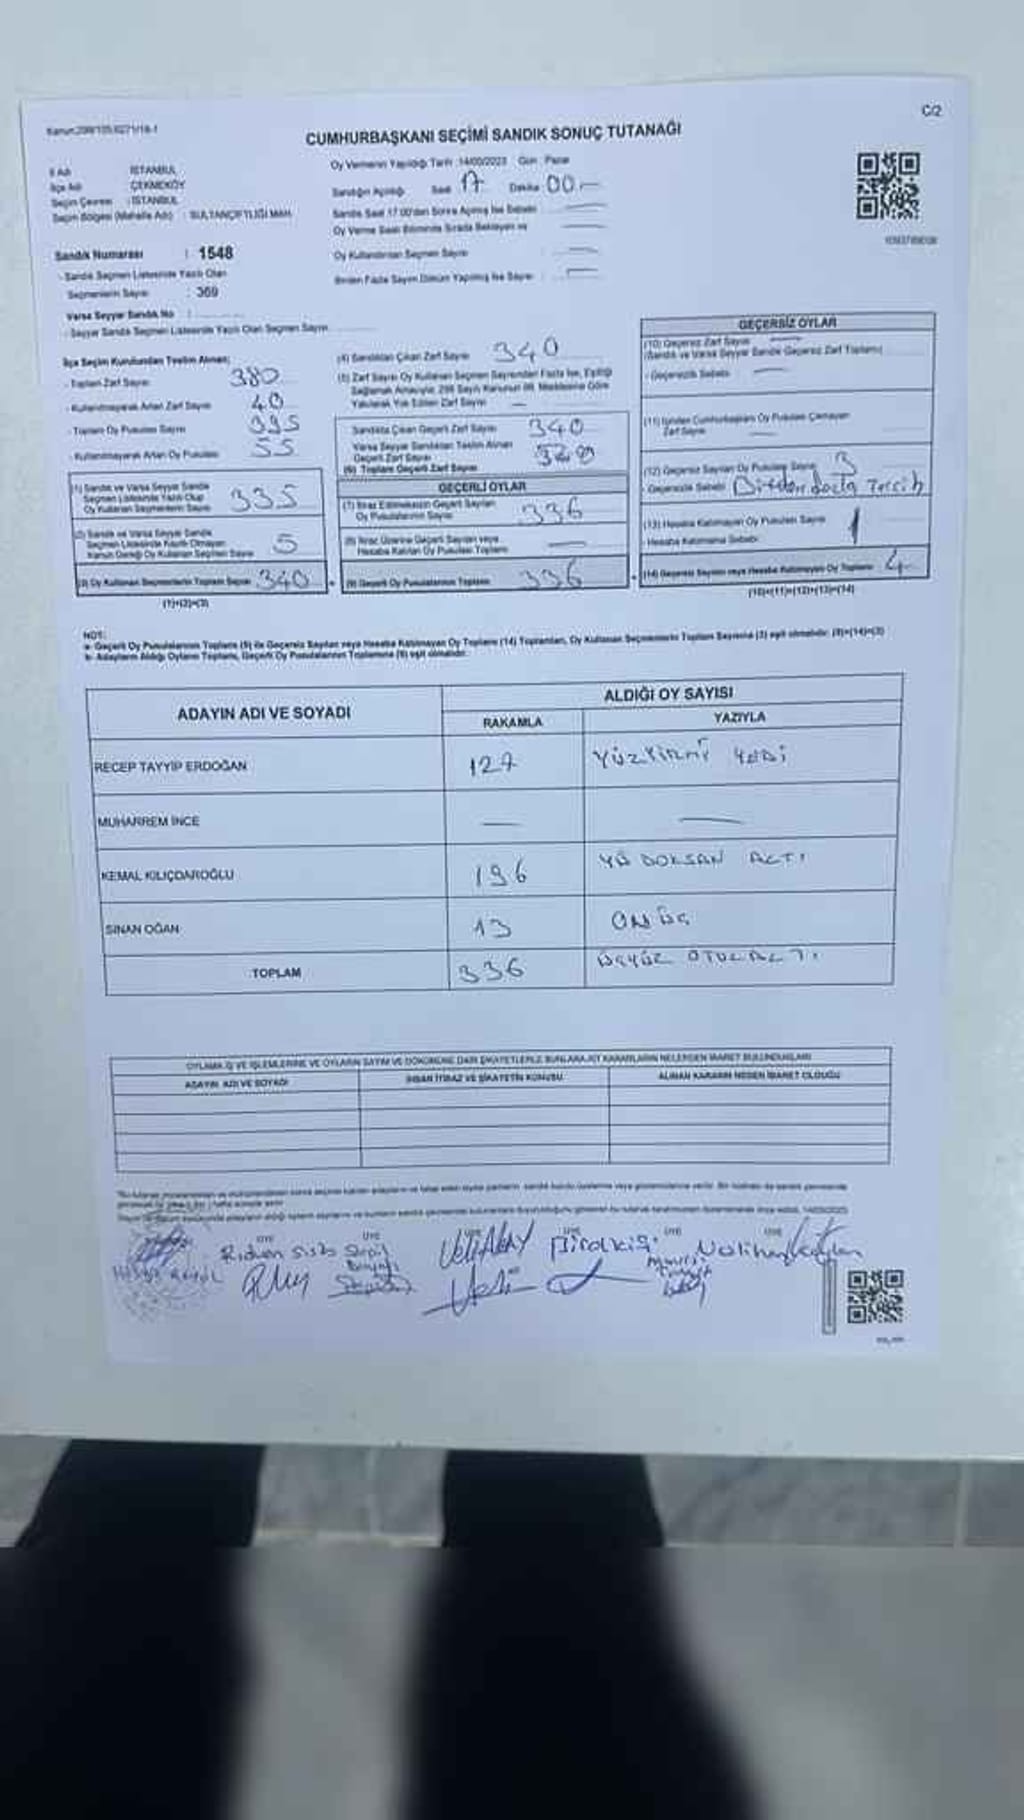 C/2
CUMHURBAŞKANI SEÇİMİ SANDIK SONUÇ TUTANAĞI
İl Adı : İSTANBUL
İlçe Adı : ÇEKMEKÖY
Seçim Çevresi : İSTANBUL
Seçim Bölgesi (Mahalle Adı) : SULTANÇİFTLİĞİ MAH.
Sandık Numarası : 1548
- Sandık Seçmen Listesinde Yazılı Olan
Seçmenlerin Sayısı : 369
Varsa Seyyar Sandık No :
- Seyyar Sandık Seçmen Listesinde Yazılı Olan Seçmen Sayısı
Oy Vermenin Yapıldığı Tarih : 14/05/2023 Gün : Pazar
Sandığın Açıldığı Saat 17 Dakika 00
Sandık Saat 17.00'den Sonra Açılmış İse Sebebi
Oy Verme Saati Bitiminde Sırada Bekleyen ve
Oy Kullandırılan Seçmen Sayısı
Birden Fazla Sayım Döküm Yapılmış İse Sayısı
İlçe Seçim Kurulundan Teslim Alınan;
- Toplam Zarf Sayısı 380
- Kullanılmayarak Artan Zarf Sayısı 40
- Toplam Oy Pusulası Sayısı 395
- Kullanılmayarak Artan Oy Pusulası 55
(1) Sandık ve Varsa Seyyar Sandık
Seçmen Listesinde Yazılı Olup
Oy Kullanan Seçmenlerin Sayısı 335
(2) Sandık ve Varsa Seyyar Sandık
Seçmen Listesinde Kayıtlı Olmayan
Kanun Gereği Oy Kullanan Seçmen Sayısı 5
(3) Oy Kullanan Seçmenlerin Toplam Sayısı 340
(1)+(2)=(3)
(4) Sandıktan Çıkan Zarf Sayısı 340
(5) Zarf Sayısı Oy Kullanan Seçmen Sayısından Fazla İse, Eşitliği
Sağlamak Amacıyla; 298 Sayılı Kanunun 98. Maddesine Göre
Yakılarak Yok Edilen Zarf Sayısı —
Sandıkta Çıkan Geçerli Zarf Sayısı 340
Varsa Seyyar Sandıktan Teslim Alınan
Geçerli Zarf Sayısı
(6) Toplam Geçerli Zarf Sayısı
GEÇERLİ OYLAR
(7) İtiraz Edilmeksizin Geçerli Sayılan
Oy Pusulalarının Sayısı 336
(8) İtiraz Üzerine Geçerli Sayılan veya
Hesaba Katılan Oy Pusulası Toplamı —
(9) Geçerli Oy Pusulalarının Toplamı 336
GEÇERSİZ OYLAR
(10) Geçersiz Zarf Sayısı
(Sandık ve Varsa Seyyar Sandık Geçersiz Zarf Toplamı)
- Geçersizlik Sebebi —
(11) İçinden Cumhurbaşkanı Oy Pusulası Çıkmayan
Zarf Sayısı —
(12) Geçersiz Sayılan Oy Pusulası Sayısı 3
- Geçersizlik Sebebi Birden fazla Tercih
(13) Hesaba Katılmayan Oy Pusulası Sayısı 1
- Hesaba Katılmama Sebebi
(14) Geçersiz Sayılan veya Hesaba Katılmayan Oy Toplamı 4
(10)+(11)+(12)+(13)=(14)
NOT:
a- Geçerli Oy Pusulalarının Toplamı (9) ile Geçersiz Sayılan veya Hesaba Katılmayan Oy Toplamı (14) Toplamları, Oy Kullanan Seçmenlerin Toplam Sayısına (3) eşit olmalıdır. (9)+(14)=(3)
b- Adayların Aldığı Oyların Toplamı, Geçerli Oy Pusulalarının Toplamına (9) eşit olmalıdır.
ADAYIN ADI VE SOYADI
ALDIĞI OY SAYISI
RAKAMLA YAZIYLA
RECEP TAYYİP ERDOĞAN 127 YÜZYİRMİ YEDİ
MUHARREM İNCE — —
KEMAL KILIÇDAROĞLU 196 YÜ DOKSAN ALTI
SİNAN OĞAN 13 ON ÜÇ
TOPLAM 336 ÜÇYÜZ OTUZ ALTI
OYLAMA İŞ VE İŞLEMLERİNE VE OYLARIN SAYIM VE DÖKÜMÜNE DAİR ŞİKAYETLERLE BUNLARA AİT KARARLARIN NELERDEN İBARET BULUNDUKLARI
ADAYIN ADI VE SOYADI
İNSAN İTİRAZ VE ŞİKAYETİN KONUSU
ALINAN KARARIN NEDEN İBARET OLDUĞU
ÜYE ÜYE ÜYE ÜYE ÜYE ÜYE